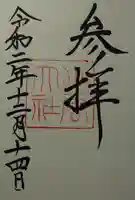 参拝
令和二年十二月十四日